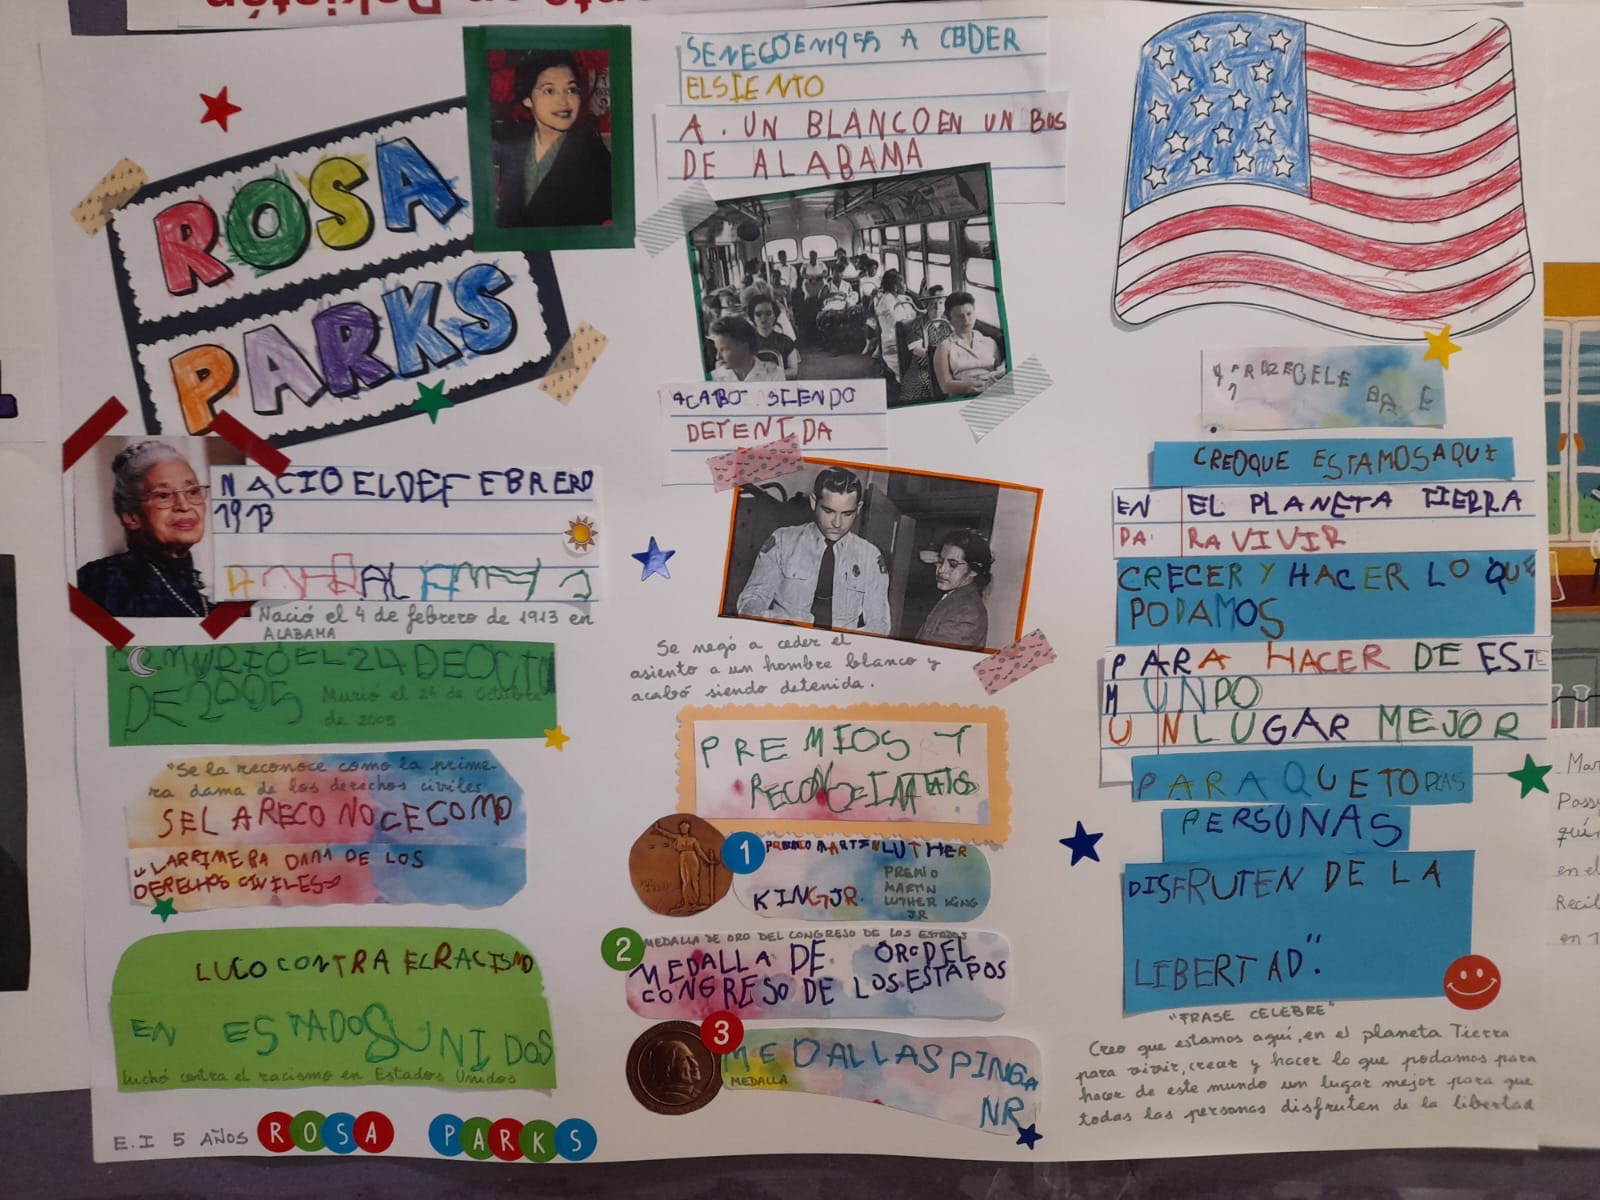 ROSA
PARKS
NACIO EL DE FEBRERO
1913
Nació el 4 de febrero de 1913 en
ALABAMA
MURIO EL 24 DE OCTU
DE 2005
Murió el 24 de Octubre
de 2005
"Se la reconoce como la prime-
ra dama de los derechos civiles
SE LA RECONOCE COMO
"LA PRIMERA DAMA DE LOS
DERECHOS CIVILES"
LUCO CONTRA EL RACISMO
EN ESTADOS UNIDOS
luchó contra el racismo en Estados Unidos
E.I 5 AÑOS ROSA PARKS
SE NEGO EN 1955 A CEDER
EL SIENTO
A . UN BLANCO EN UN BUS
DE ALABAMA
ACABO SIENDO
DETENIDA
Se negó a ceder el
asiento a un hombre blanco y
acabó siendo detenida.
PREMIOS Y
1 PREMIO MARTIN LUTHER
KING JR.
PREMIO
MARTIN
LUTHER KING
JR
2 MEDALLA DE ORO DEL CONGRESO DE LOS ESTADOS
MEDALLA DE ORO DEL
CONGRESO DE LOS ESTADOS
3 MEDALLA SPINGA
NR
MEDALLA
CREO QUE ESTAMOS AQUI
EN EL PLANETA TIERRA
PA RA VIVIR
CRECER Y HACER LO QUE
PODAMOS
PARA HACER DE ESTE
MUNDO
UN LUGAR MEJOR
PARA QUE TODAS
PERSONAS
DISFRUTEN DE LA
LIBERTAD".
"FRASE CELEBRE"
Creo que estamos aquí, en el planeta Tierra
para vivir, crear y hacer lo que podamos para
hacer de este mundo un lugar mejor para que
todas las personas disfruten de la libertad